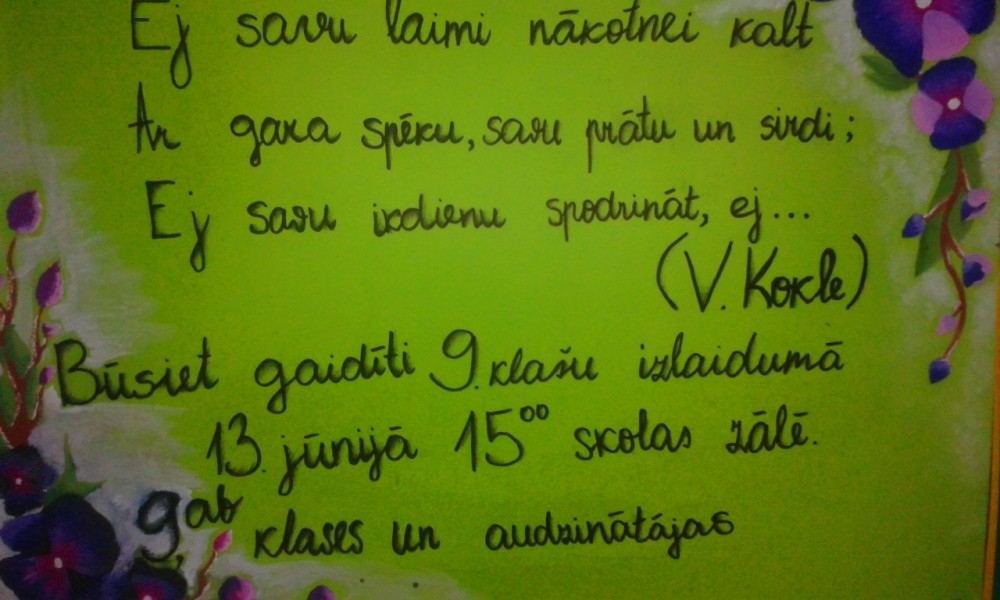 Ej savu laimi nākotnei kalt
Ar gara spēku, savu prātu un sirdi;
Ej savu ikdienu spodrināt, ej...
(V. Kokle)
Būsiet gaidīti 9. klašu izlaidumā
13. jūnijā 15⁰⁰ skolas zālē.
9.ab klases un audzinātājas